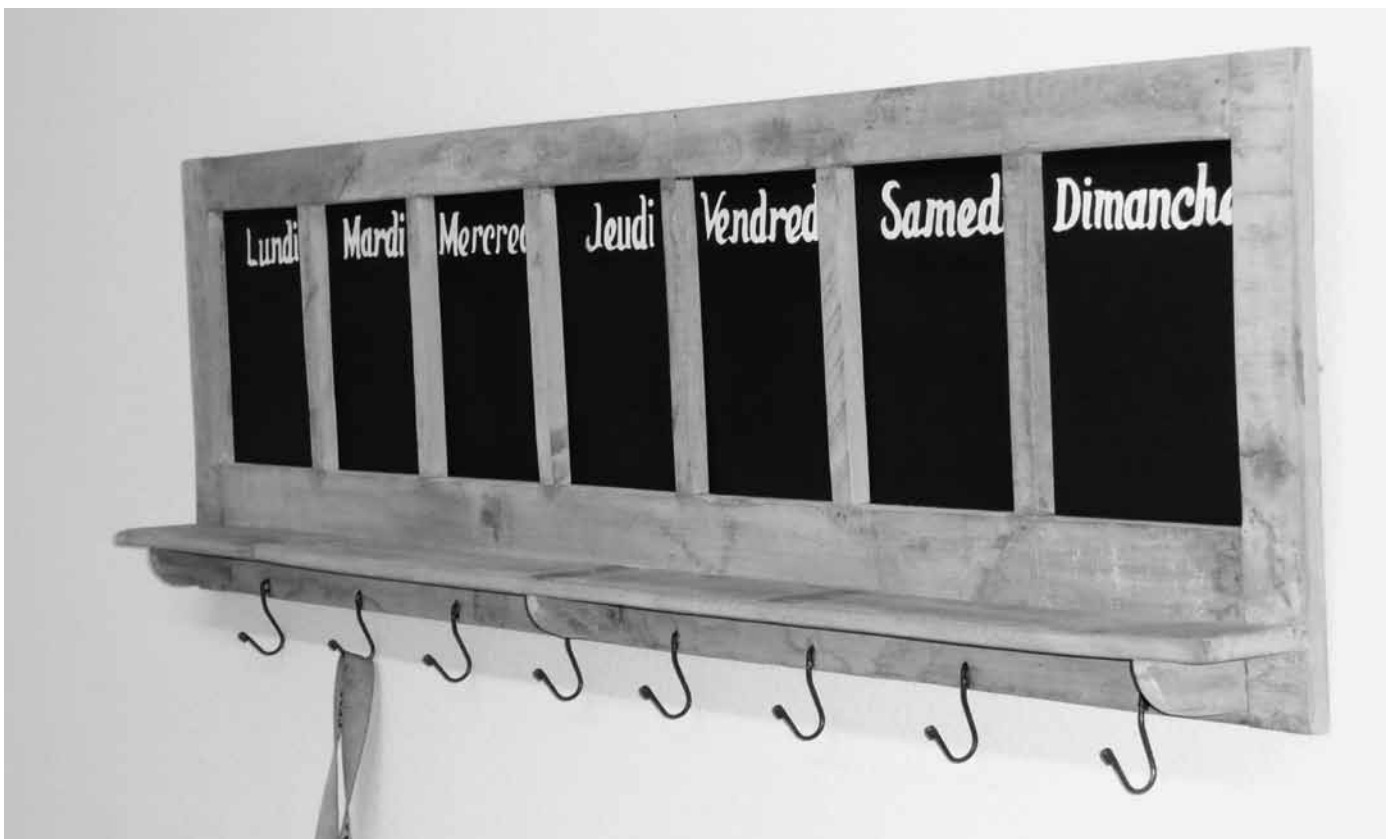 Lundi Mardi Mercred Jeudi Vendred Samed Dimanche